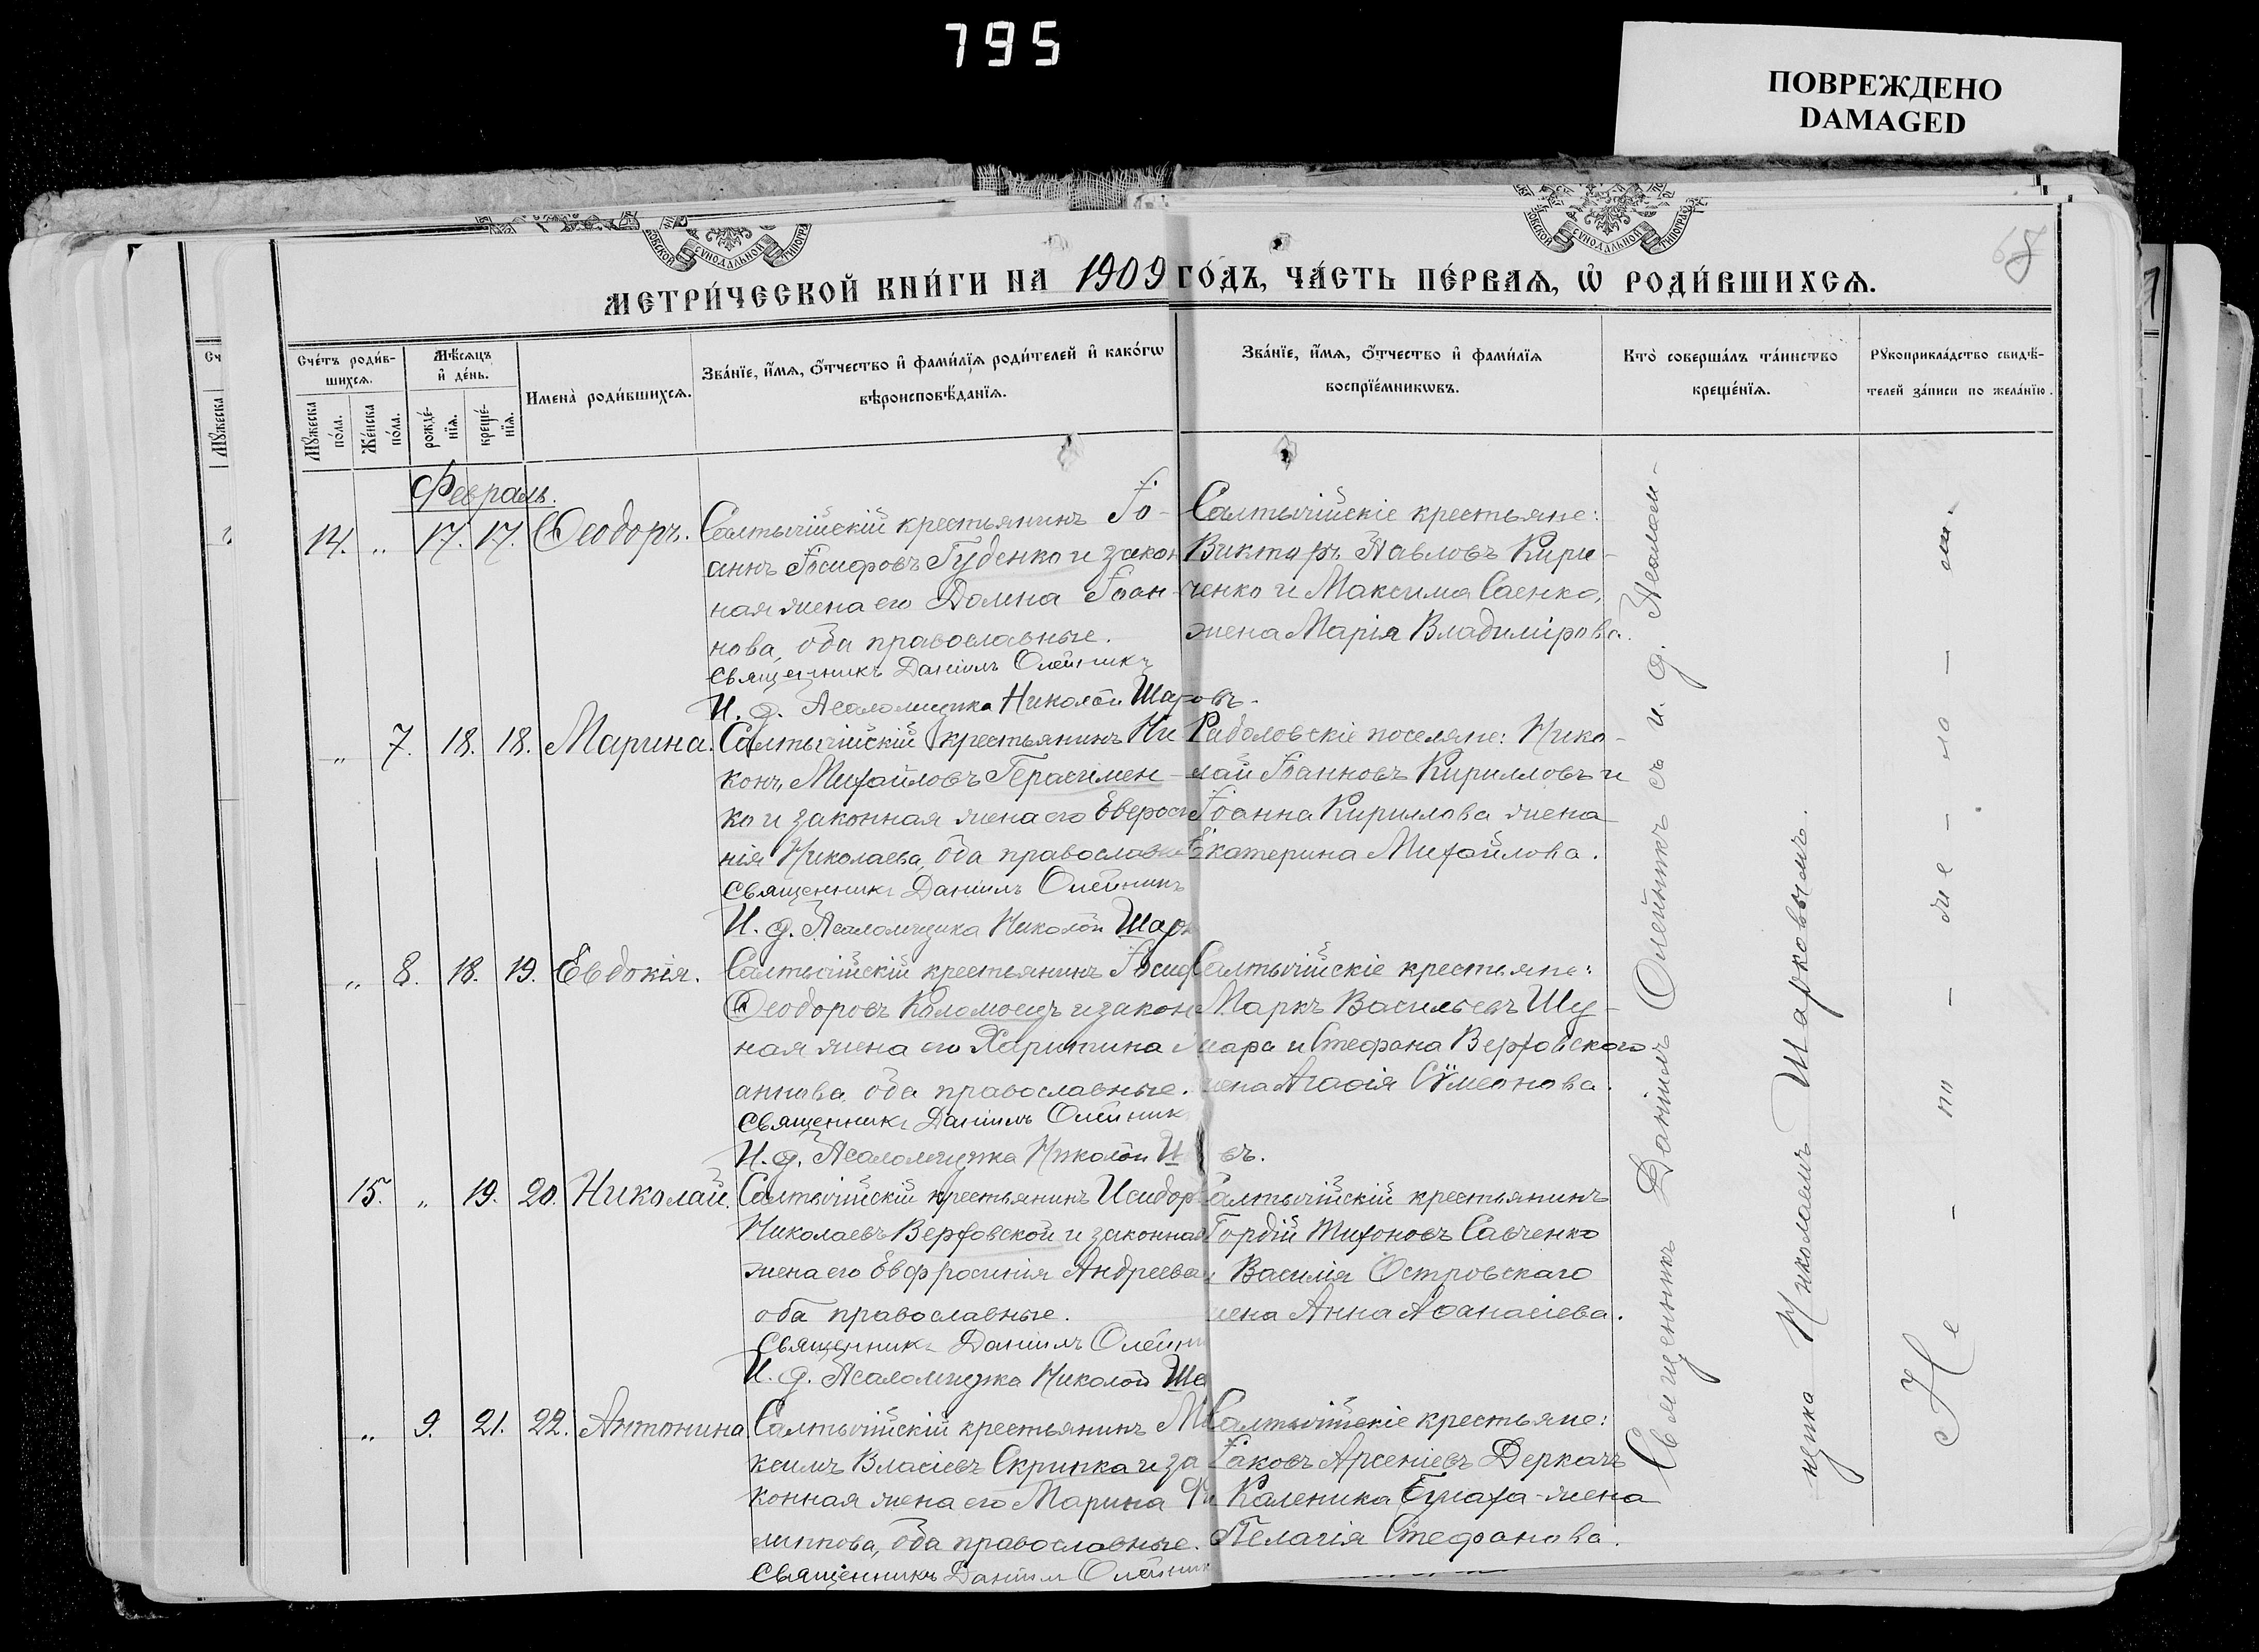 795
ПОВРЕЖДЕНО
DAMAGED
МЕТРИ́ЧЕСКОЙ КНИ́ГИ НА 1909 ГО́ДЪ, ЧА́СТЬ ПЕ́РВАѦ, Ѡ҆ РОДИ́ВШИХСѦ.
68
Сче́тъ роди́в-
шихсѧ.
Мѣ́сѧцъ
и҆ де́нь.
Мꙋ́жеска
по́ла.
Же́нска
по́ла.
рожде́-
нїѧ.
креще́-
нїѧ.
Имена̀ роди́вшихсѧ.
Зва́нїе, и҆́мѧ, ѻ҆́тчество и҆ фами́лїѧ роди́телей и҆ како́гѡ
вѣроисповѣ́данїѧ.
Зва́нїе, и҆́мѧ, ѻ҆́тчество и҆ фами́лїѧ
воспрїе́мникѡвъ.
Кто̀ соверша́лъ та́инство
креще́нїѧ.
Рꙋкоприкла́дство свидѣ́-
телей за́писи по жела́нїю.
Февраль.
14. „ 17. 17. Ѳеодоръ.
Салтычійскій крестьянинъ Іо-
аннъ Іосифовъ Губенко и закон
ная жена его Домна Іоан-
нова, оба православные.
Священникъ Даніилъ Олейникъ
И. д. Псаломщика Николай Шарковъ.
Салтычійскіе крестьяне:
Викторъ Павловъ Кири-
ченко и Максима Саенко,
жена Марія Владимірова.
„ 7. 18. 18. Марина.
Салтычійскій крестьянинъ Ни
конъ Михайловъ Герасимен-
ко и законная жена его Евфроси
нія Николаева, оба православные
Священникъ Даніилъ Олейникъ
И. д. Псаломщика Николай Шарк
Радоловскіе поселяне: Нико-
лай Іоанновъ Кирилловъ и
Іоанна Кирилова жена
Екатерина Михайлова.
„ 8. 18. 19. Евдокія.
Салтычійскій крестьянинъ Іосиф
Ѳеодоровъ Коломоецъ и закон
ная жена его Харитина
аннова, оба православные.
Священникъ Даніилъ Олейник
И. д. Псаломщика Николай Ш въ.
Салтычійскіе крестьяне:
Маркъ Васильевъ Шу-
мара и Стефана Верховского
жена Агаѳія Сѵмеонова.
15. „ 19. 20. Николай.
Салтычійскій крестьянинъ Исидор
Николаевъ Верховской и законная
жена его Евфросинія Андреева,
оба православные.
Священникъ Даніилъ Олейни
И. д. Псаломщика Николай Ша
Салтычійскій крестьянинъ
Гордій Тихоновъ Савченко
и Василія Островскаго
жена Анна Аѳанасіева.
„ 9. 21. 22. Антонина
Салтычійскій крестьянинъ Ма
ксимъ Власіевъ Скрипка и за
конная жена его Марина Фи
липпова, оба православные.
Священникъ Даніилъ Олейник
Салтычійскіе крестьяне:
Іаковъ Арсеніевъ Деркачъ
Каленика жена
Пелагія Стефанова.
Священникъ Даніилъ Олейникъ съ и. д. Псалом-
щика Николаемъ Шарковымъ.
Не - т - же - ло - ли.